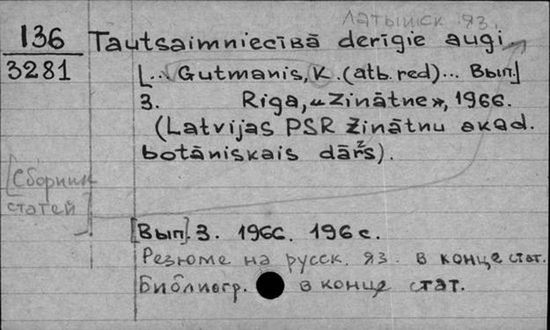 Латышск. яз.
136
3281
Tautsaimniecībā derīgie augi
[.. Gutmanis, K. (atb. red)... Вып]
3. Rīga, «Zinātne», 1966.
(Latvijas PSR Zinātņu akad.
botāniskais dārzs).
[Сборник
статей]
[Вып]. 3. 1966. 196 с.
Резюме на русск. яз. в конце стат.
Библиогр. в конце стат.